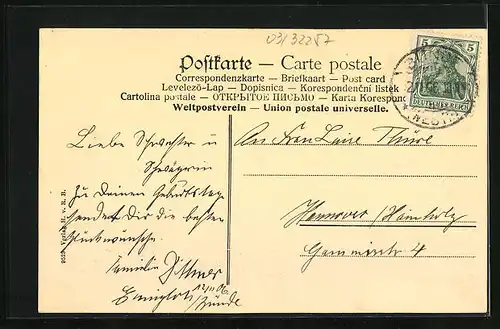 03132257
Postkarte — Carte postale
Correspondenzkarte — Briefkaart — Post card
Levelező-Lap — Dopisnica — Korespondenční lístek
Cartolina postale — ОТКРЫТОЕ ПИСЬМО — Karta Korespond
Weltpostverein — Union postale universelle.
5 5
DEUTSCHES REICH
Liebe Schwester und
Schwägerin
Zu Deinem Geburtstag
sendet Dir die besten
Glückwünsche
Familie Dittmer
12/11 06.
Bünde
An Frau Luise Thüre
Hannover / Hainholz
4
Verlag H. v. R. B.